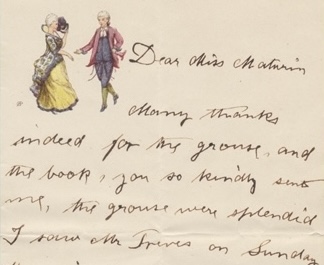 Dear Miss Maturin
Many thanks
indeed for the grouse, and
the book, you so kindly sent
me, the grouse were splendid
I saw Mr Treves on Sunday